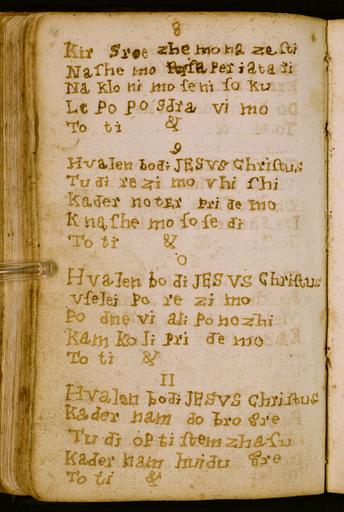 8
Kir sroe zhe mo na za sti
Nashe mo Per ja ta di
Na klo ni mo se ni so ku
Le po po sdra vi mo
To ti &
9
Hvalen bodi JESVS Christus
Tu di re zi mo vhi shi
Kader noter pri de mo
K nashe mo so se di
To ti &
0
Hvalen bo di JESVS Christus
vselei po re zi mo
Po dne vi ali po nozhi
Kam ko li pri de mo
To ti &
11
Hvalen bodi JESVS Christus
Kader nam do bro gre
Tu di op ti stem zhasu
Kader nam huidu gre
To ti &